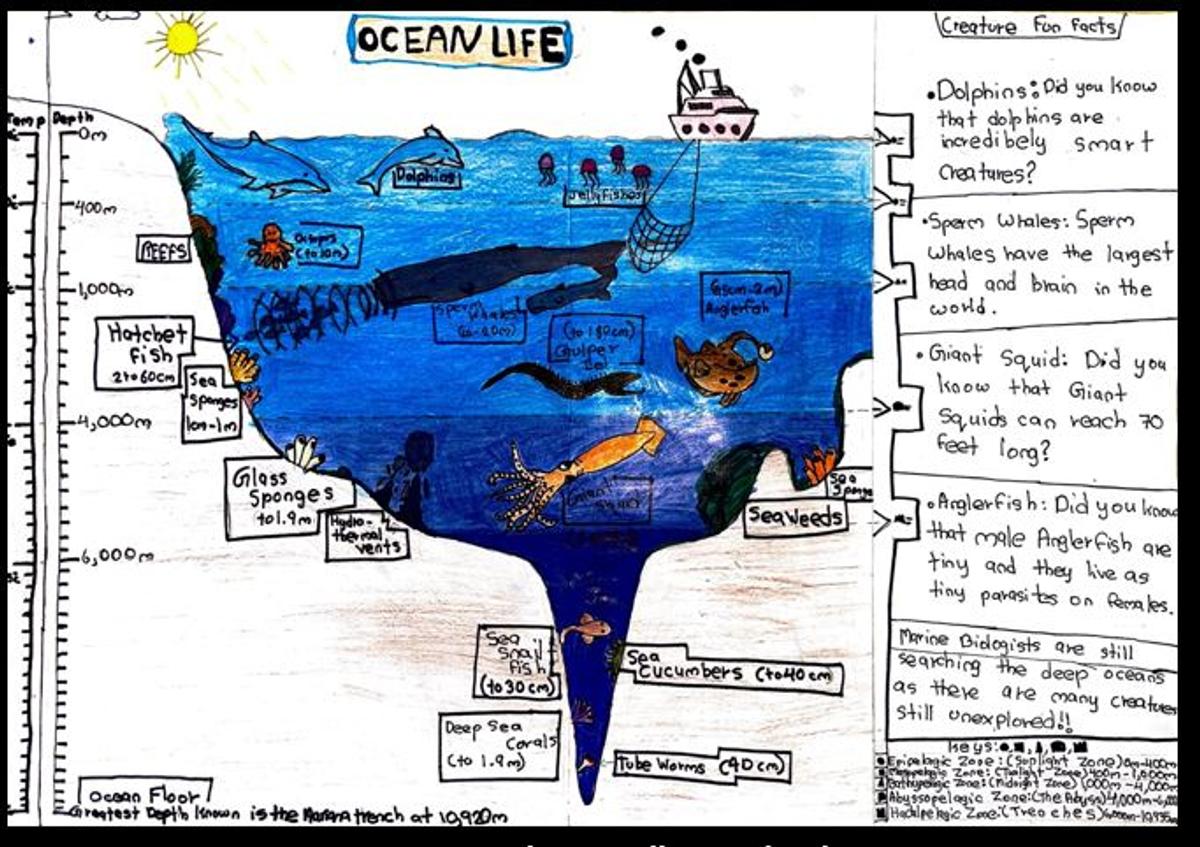 OCEAN LIFE
Temp
Depth
0m
400m
1,000m
4,000m
6,000m
Dolphins
Jellyfishes
Octopus
(to 10m)
REEFS
Sperm
Whales
(to-20m)
(to 180cm)
Gulper
Eel
Anglerfish
Hatchet
fish
2 to 60cm
Sea
Sponges
1cm-1m
Glass
Sponges
to 1.9m
Hydro-
thermal
vents
Giant
Squid
Sea
Sponge
Sea Weeds
Sea
Snail
fish
(to 30 cm)
Sea
Cucumbers (to 40 cm)
Deep Sea
Corals
(to 1.9m)
Tube Worms (40 cm)
Ocean Floor
Greatest Depth Known is the Mariana trench at 10,920m
Creature Fun Facts
•Dolphins: Did you know
that dolphins are
incredibely smart
Creatures?
•Sperm Whales: Sperm
Whales have the largest
head and brain in the
world.
•Giant Squid: Did you
know that Giant
Squids can reach 70
feet long?
•Anglerfish: Did you know
that male Anglerfish are
tiny and they live as
tiny parasites on females.
Marine Biologists are still
searching the deep oceans
as there are many creatures
still unexplored!!
Keys:
Epipelagic Zone: (Sunlight Zone) 0m-400m
Zone: (Twilight Zone) 400m-1,000m
Zone: (Midnight Zone) 1,000m-4,000m
Abyssopelagic Zone: (The Abyss) 4,000m-6,000
Hadalpelagic Zone: (Trenches)